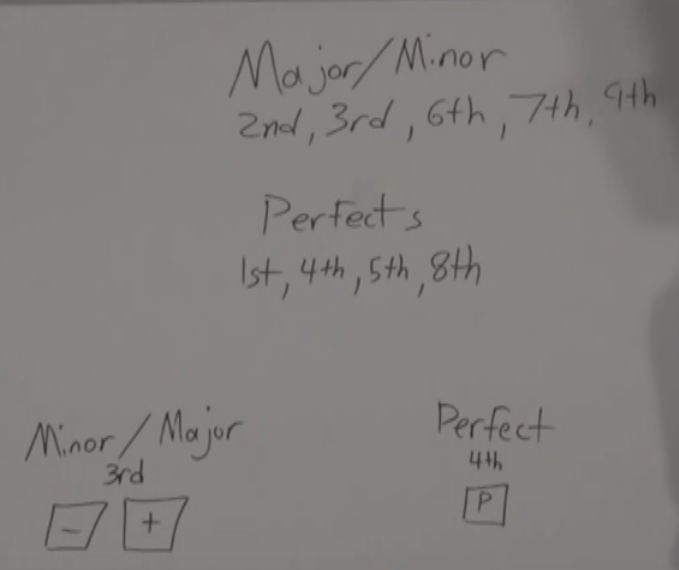 Major/Minor
2nd, 3rd, 6th, 7th, 9th
Perfects
1st, 4th, 5th, 8th
Minor/Major
3rd
- +
Perfect
4th
P